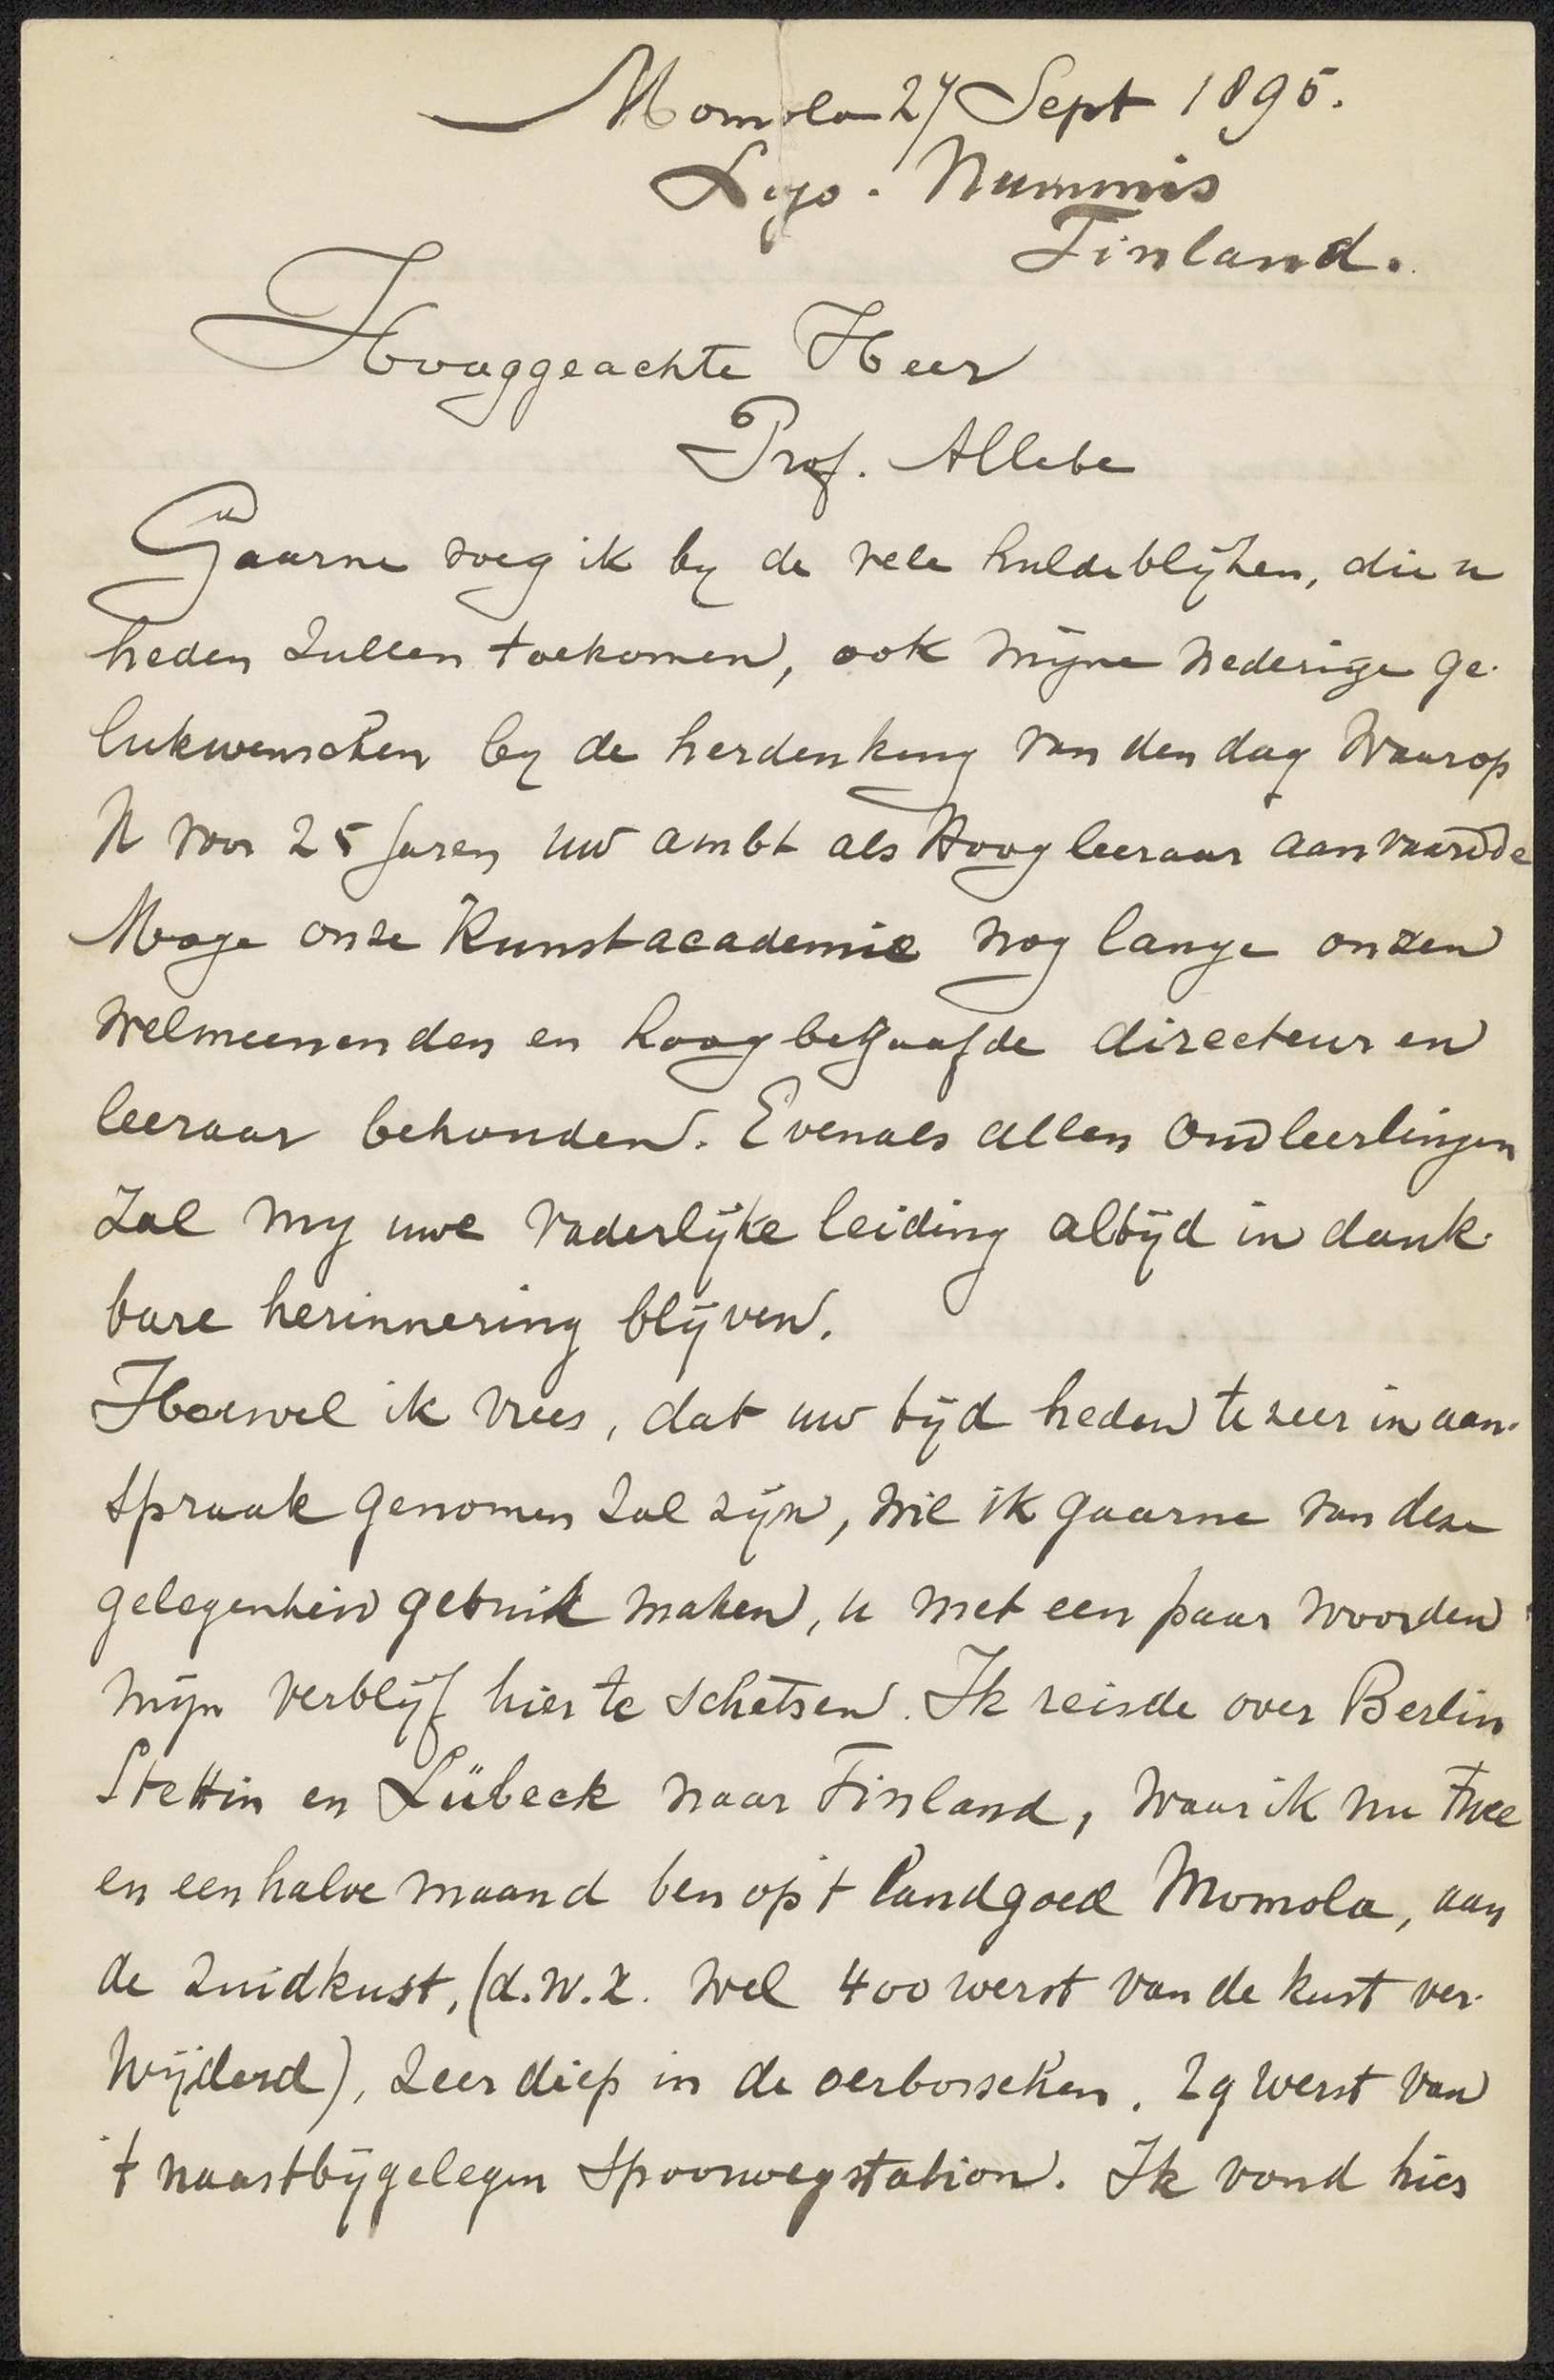 Momola 27 Sept 1895.
Lojo. Nummis
Finland.
Hooggeachte Heer
Prof. Allebe
Gaarne voeg ik by de vele huldeblijken, die u
heden zullen toekomen, ook mijne nederige ge-
lukwenschen by de herdenking van den dag waarop
U voor 25 jaren uw ambt als Hoogleeraar aanvaardde
Moge onze Kunstacademie nog lange onzen
welmeenenden en hoogbegaafde directeur en
leeraar behouden. Evenals allen oudleerlingen
zal my uwe vaderlijke leiding altijd in dank-
bare herinnering blijven.
Hoewel ik vrees, dat uw tijd heden te zeer in aan-
spraak genomen zal zijn, wil ik gaarne van deze
gelegenheid gebruik maken, u met een paar woorden
mijn verblijf hier te schetsen. Ik reisde over Berlin
Stettin en Lübeck naar Finland, waar ik nu twee
en een halve maand ben op 't landgoed Momola, aan
de zuidkust, (d.w.z. wel 400 werst van de kust ver-
wijderd), zeer diep in de oerbosschen. 29 werst van
't naastbijgelegen spoorwegstation. Ik vond hier